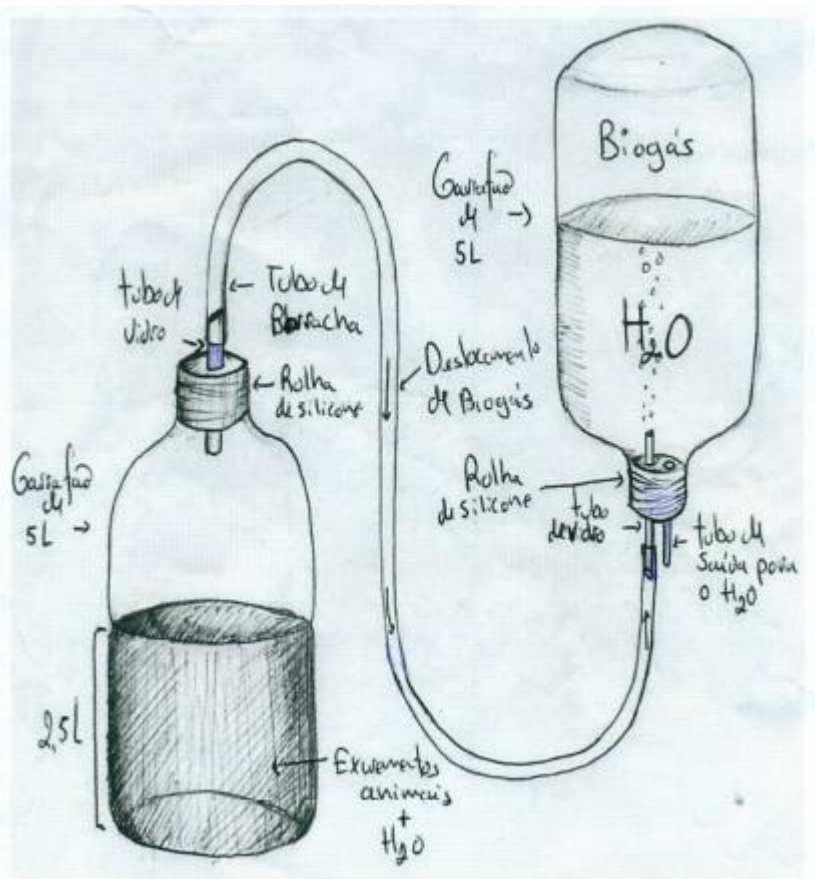 Biogás
Garrafão
de
5L
H₂O
tubo de
vidro
Tubo de
Borracha
Rolha
de silicone
Deslocamento
de Biogás
Garrafão
de
5L
Rolha
de silicone
tubo
de vidro
tubo de
Saída para
o H₂O
2,5L
Excrementos
animais
+
H₂O